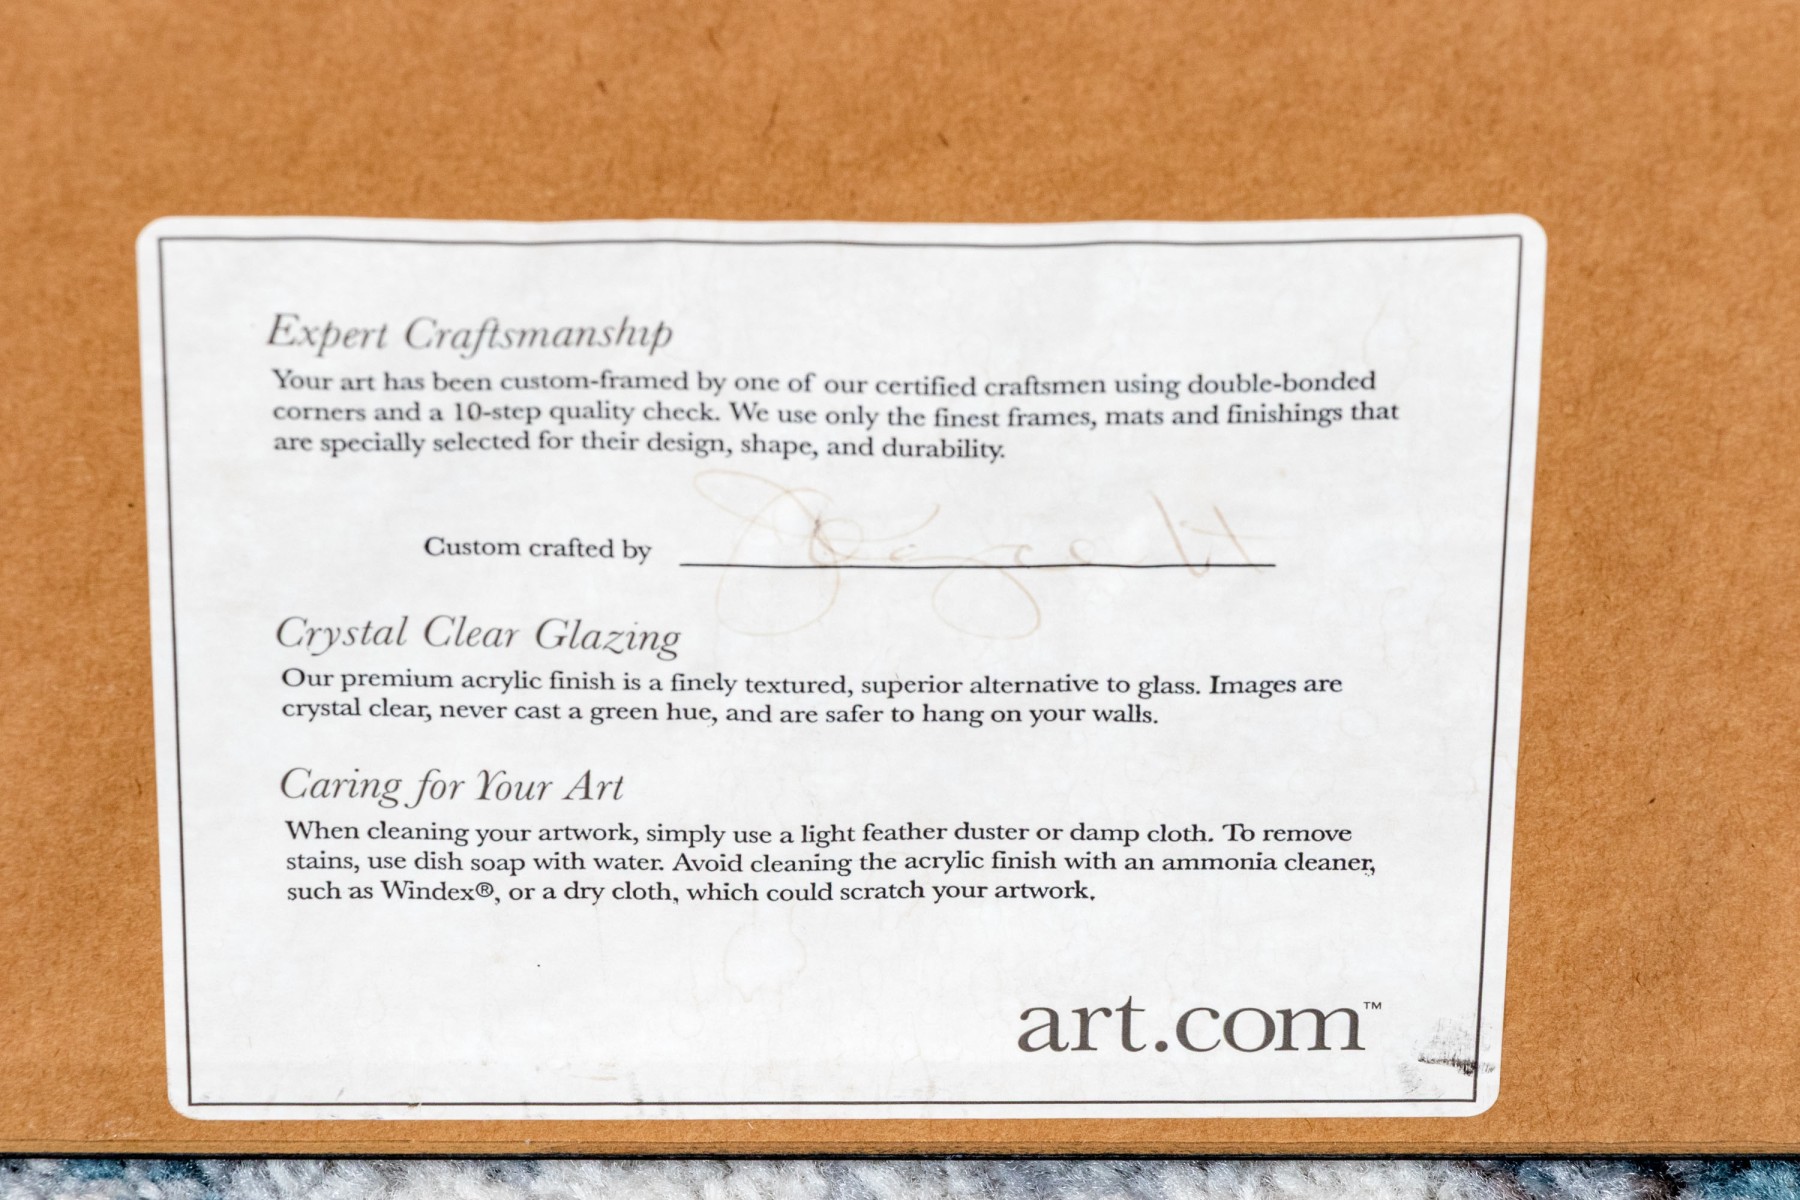 Expert Craftsmanship
Your art has been custom-framed by one of our certified craftsmen using double-bonded
corners and a 10-step quality check. We use only the finest frames, mats and finishings that
are specially selected for their design, shape, and durability.
Custom crafted by
Crystal Clear Glazing
Our premium acrylic finish is a finely textured, superior alternative to glass. Images are
crystal clear, never cast a green hue, and are safer to hang on your walls.
Caring for Your Art
When cleaning your artwork, simply use a light feather duster or damp cloth. To remove
stains, use dish soap with water. Avoid cleaning the acrylic finish with an ammonia cleaner,
such as Windex®, or a dry cloth, which could scratch your artwork.
art.com™